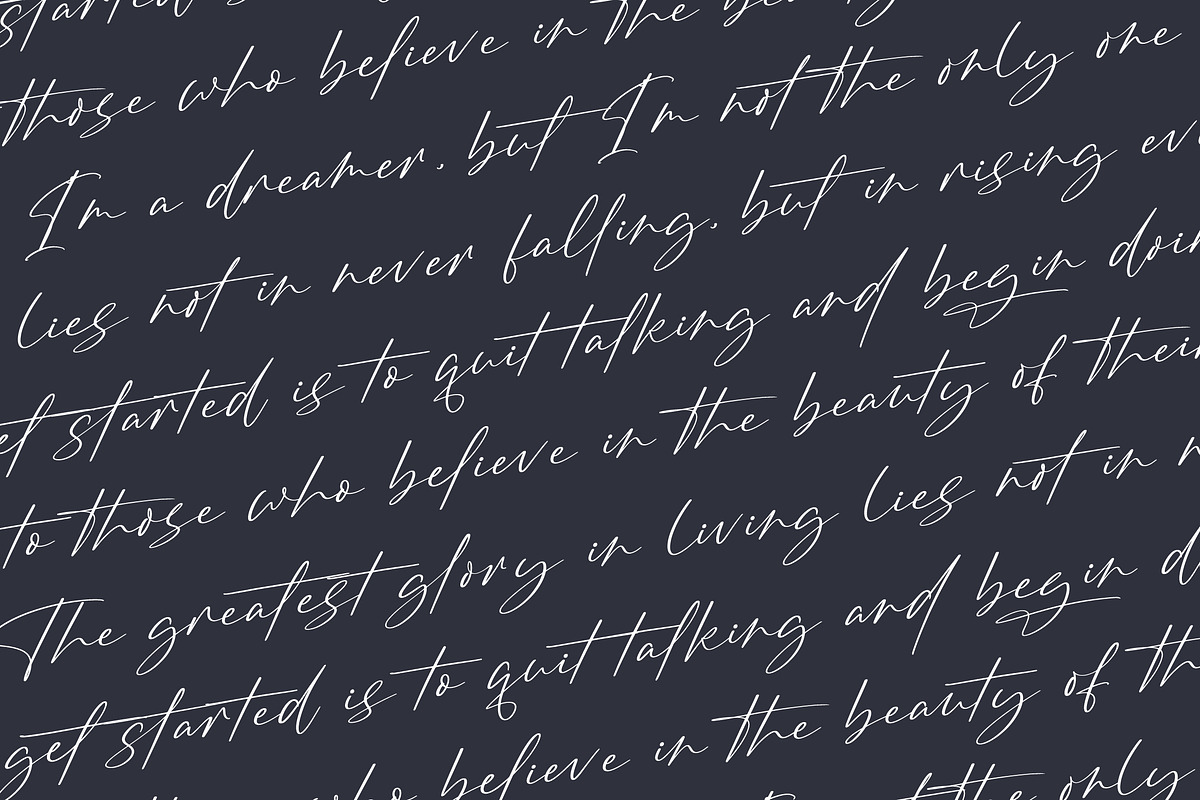 started
those who believe in the
I'm a dreamer, but I'm not the only one
lies not in never falling, but in rising
get started is to quit talking and begin
to those who believe in the beauty of their
The greatest glory in living lies not in
get started is to quit talking and begin
believe in the beauty of
the only